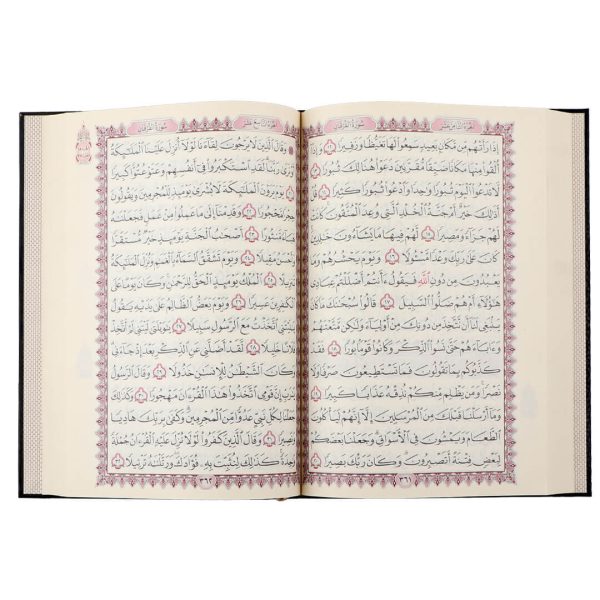 الجزء الثامن عشر
سورة الفرقان
إِذَا رَأَتْهُم مِّن مَّكَانٍ بَعِيدٍ سَمِعُوا لَهَا تَغَيُّظًا وَزَفِيرًا ١٢ وَإِذَا
أُلْقُوا مِنْهَا مَكَانًا ضَيِّقًا مُّقَرَّنِينَ دَعَوْا هُنَالِكَ ثُبُورًا ١٣
لَّا تَدْعُوا الْيَوْمَ ثُبُورًا وَاحِدًا وَادْعُوا ثُبُورًا كَثِيرًا ١٤ قُلْ
أَذَٰلِكَ خَيْرٌ أَمْ جَنَّةُ الْخُلْدِ الَّتِي وُعِدَ الْمُتَّقُونَ كَانَتْ
لَهُمْ جَزَاءً وَمَصِيرًا ١٥ لَّهُمْ فِيهَا مَا يَشَاءُونَ خَٰلِدِينَ
كَانَ عَلَىٰ رَبِّكَ وَعْدًا مَّسْئُولًا ١٦ وَيَوْمَ يَحْشُرُهُمْ وَمَا
يَعْبُدُونَ مِن دُونِ اللَّهِ فَيَقُولُ ءَأَنتُمْ أَضْلَلْتُمْ عِبَادِي
هَٰؤُلَاءِ أَمْ هُمْ ضَلُّوا السَّبِيلَ ١٧ قَالُوا سُبْحَٰنَكَ مَا كَانَ
يَنبَغِي لَنَا أَن نَّتَّخِذَ مِن دُونِكَ مِنْ أَوْلِيَاءَ وَلَٰكِن مَّتَّعْتَهُمْ
وَءَابَاءَهُمْ حَتَّىٰ نَسُوا الذِّكْرَ وَكَانُوا قَوْمًا بُورًا ١٨ فَقَدْ
كَذَّبُوكُم بِمَا تَقُولُونَ فَمَا تَسْتَطِيعُونَ صَرْفًا وَلَا
نَصْرًا وَمَن يَظْلِم مِّنكُمْ نُذِقْهُ عَذَابًا كَبِيرًا ١٩
وَمَا أَرْسَلْنَا قَبْلَكَ مِنَ الْمُرْسَلِينَ إِلَّا إِنَّهُمْ لَيَأْكُلُونَ
الطَّعَامَ وَيَمْشُونَ فِي الْأَسْوَاقِ وَجَعَلْنَا بَعْضَكُمْ
لِبَعْضٍ فِتْنَةً أَتَصْبِرُونَ وَكَانَ رَبُّكَ بَصِيرًا ٢٠
٣٦١
الجزء التاسع عشر
سورة الفرقان
وَقَالَ الَّذِينَ لَا يَرْجُونَ لِقَاءَنَا لَوْلَا أُنزِلَ عَلَيْنَا الْمَلَٰئِكَةُ
أَوْ نَرَىٰ رَبَّنَا لَقَدِ اسْتَكْبَرُوا فِي أَنفُسِهِمْ وَعَتَوْ عُتُوًّا كَبِيرًا
٢١ يَوْمَ يَرَوْنَ الْمَلَٰئِكَةَ لَا بُشْرَىٰ يَوْمَئِذٍ لِّلْمُجْرِمِينَ وَيَقُولُونَ
حِجْرًا مَّحْجُورًا ٢٢ وَقَدِمْنَا إِلَىٰ مَا عَمِلُوا مِنْ عَمَلٍ فَجَعَلْنَٰهُ
هَبَاءً مَّنثُورًا ٢٣ أَصْحَٰبُ الْجَنَّةِ يَوْمَئِذٍ خَيْرٌ مُّسْتَقَرًّا
وَأَحْسَنُ مَقِيلًا ٢٤ وَيَوْمَ تَشَقَّقُ السَّمَاءُ بِالْغَمَٰمِ وَنُزِّلَ الْمَلَٰئِكَةُ
تَنزِيلًا ٢٥ الْمُلْكُ يَوْمَئِذٍ الْحَقُّ لِلرَّحْمَٰنِ وَكَانَ يَوْمًا عَلَى
الْكَٰفِرِينَ عَسِيرًا ٢٦ وَيَوْمَ يَعَضُّ الظَّالِمُ عَلَىٰ يَدَيْهِ يَقُولُ
يَٰلَيْتَنِي اتَّخَذْتُ مَعَ الرَّسُولِ سَبِيلًا ٢٧ يَٰوَيْلَتَىٰ لَيْتَنِي لَمْ أَتَّخِذْ
فُلَانًا خَلِيلًا ٢٨ لَّقَدْ أَضَلَّنِي عَنِ الذِّكْرِ بَعْدَ إِذْ جَاءَنِي
وَكَانَ الشَّيْطَٰنُ لِلْإِنسَٰنِ خَذُولًا ٢٩ وَقَالَ الرَّسُولُ
يَٰرَبِّ إِنَّ قَوْمِي اتَّخَذُوا هَٰذَا الْقُرْءَانَ مَهْجُورًا ٣٠ وَكَذَٰلِكَ
جَعَلْنَا لِكُلِّ نَبِيٍّ عَدُوًّا مِّنَ الْمُجْرِمِينَ وَكَفَىٰ بِرَبِّكَ هَادِيًا
وَنَصِيرًا ٣١ وَقَالَ الَّذِينَ كَفَرُوا لَوْلَا نُزِّلَ عَلَيْهِ الْقُرْءَانُ جُمْلَةً
وَٰحِدَةً كَذَٰلِكَ لِنُثَبِّتَ بِهِ فُؤَادَكَ وَرَتَّلْنَٰهُ تَرْتِيلًا ٣٢
٣٦٢